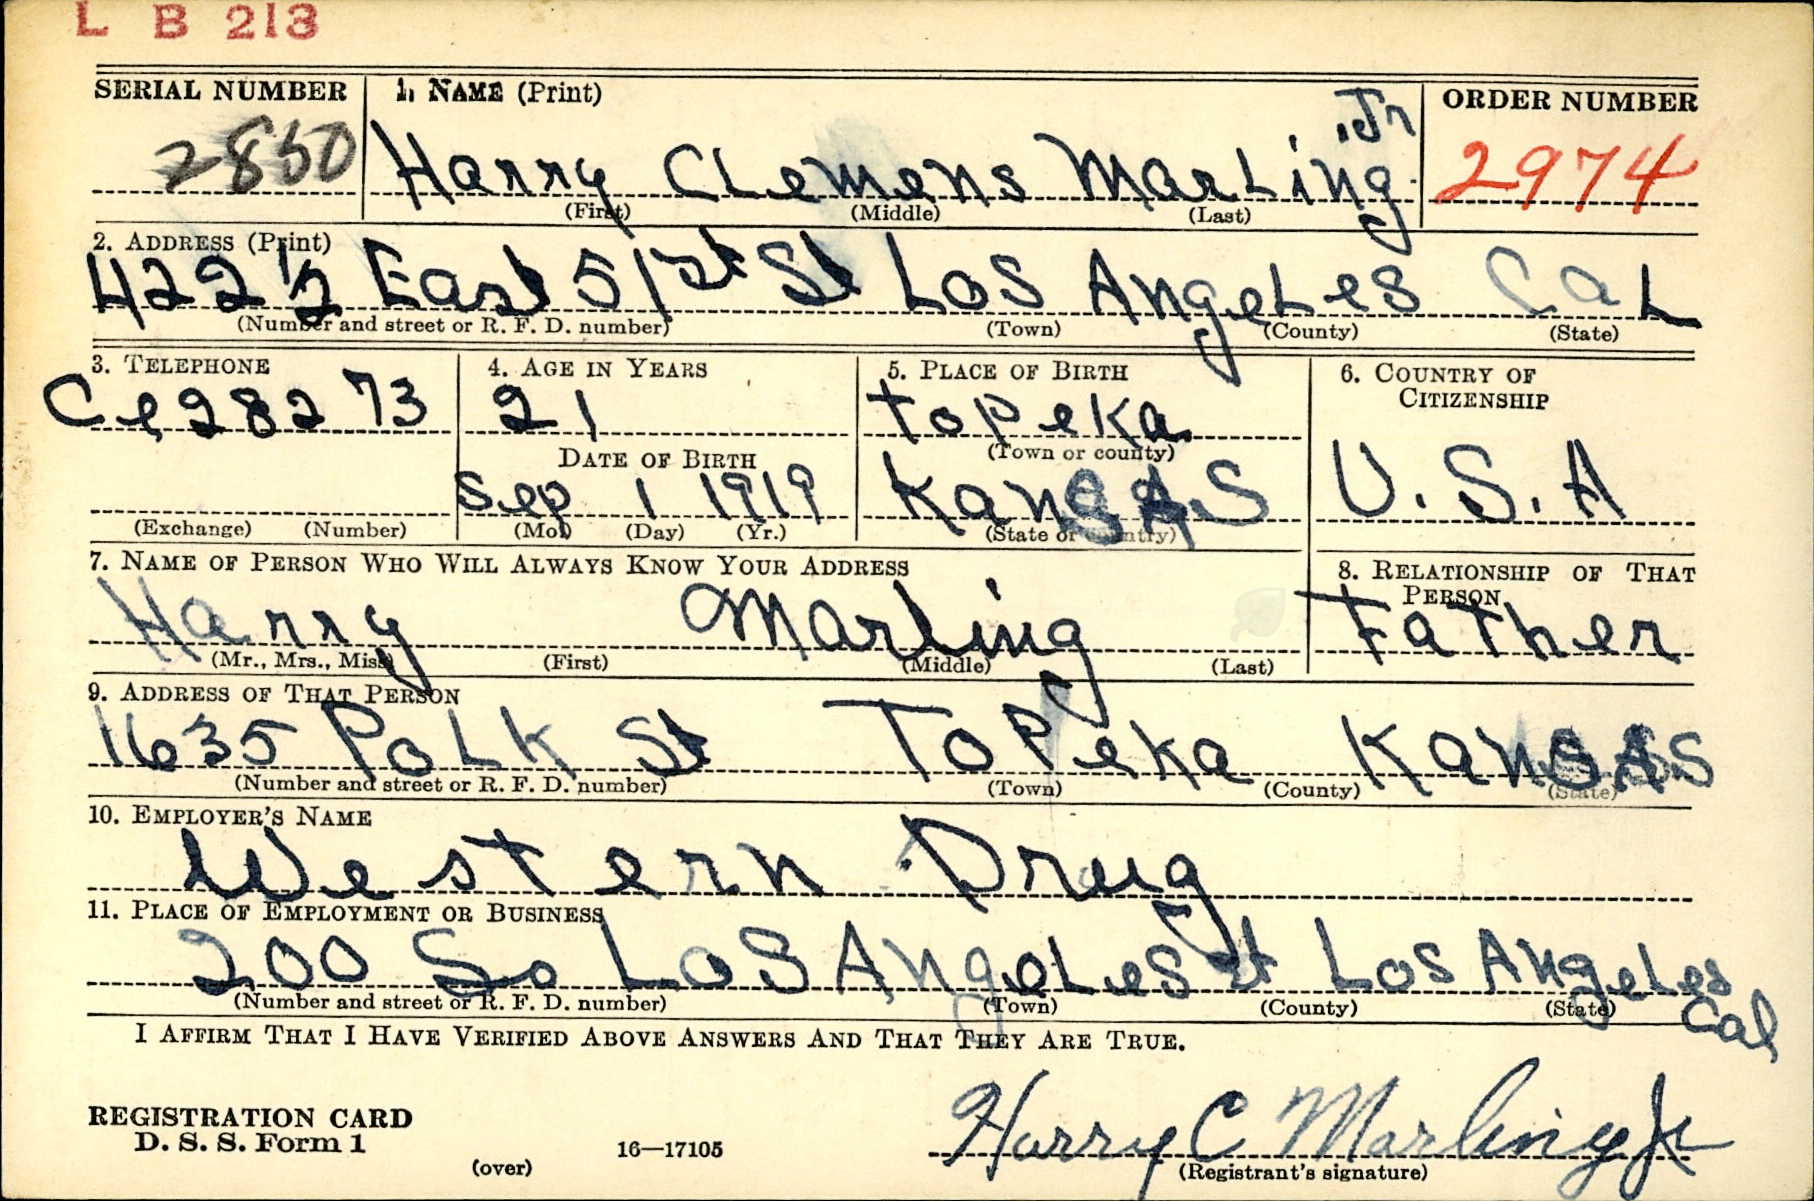 L B 213
SERIAL NUMBER 1. NAME (Print) ORDER NUMBER
2850 Harry CLemens MarLing .Jr 2974
(First) (Middle) (Last)
2. ADDRESS (Print)
422 1/2 East 51st St Los AngeLes CaL
(Number and street or R. F. D. number) (Town) (County) (State)
3. TELEPHONE 4. AGE IN YEARS 5. PLACE OF BIRTH 6. COUNTRY OF CITIZENSHIP
Ce 282 73 21 Topeka
DATE OF BIRTH (Town or county)
Sep 1 1919 Kansas U.S.A
(Exchange) (Number) (Mo.) (Day) (Yr.) (State or country)
7. NAME OF PERSON WHO WILL ALWAYS KNOW YOUR ADDRESS 8. RELATIONSHIP OF THAT PERSON
Harry Marling Father
(Mr., Mrs., Miss) (First) (Middle) (Last)
9. ADDRESS OF THAT PERSON
1635 PoLk St Topeka Kansas
(Number and street or R. F. D. number) (Town) (County) (State)
10. EMPLOYER'S NAME
Western Drug
11. PLACE OF EMPLOYMENT OR BUSINESS
200 So Los AngeLes st Los AngeLes
(Number and street or R. F. D. number) (Town) (County) (State) Cal
I AFFIRM THAT I HAVE VERIFIED ABOVE ANSWERS AND THAT THEY ARE TRUE.
REGISTRATION CARD
D. S. S. Form 1 16—17105 Harry C Marling Jr
(over) (Registrant's signature)